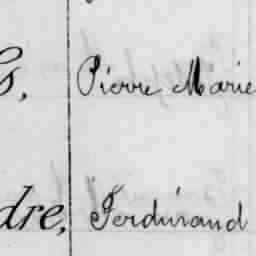 s, Pierre Marie
dre, Ferdinand